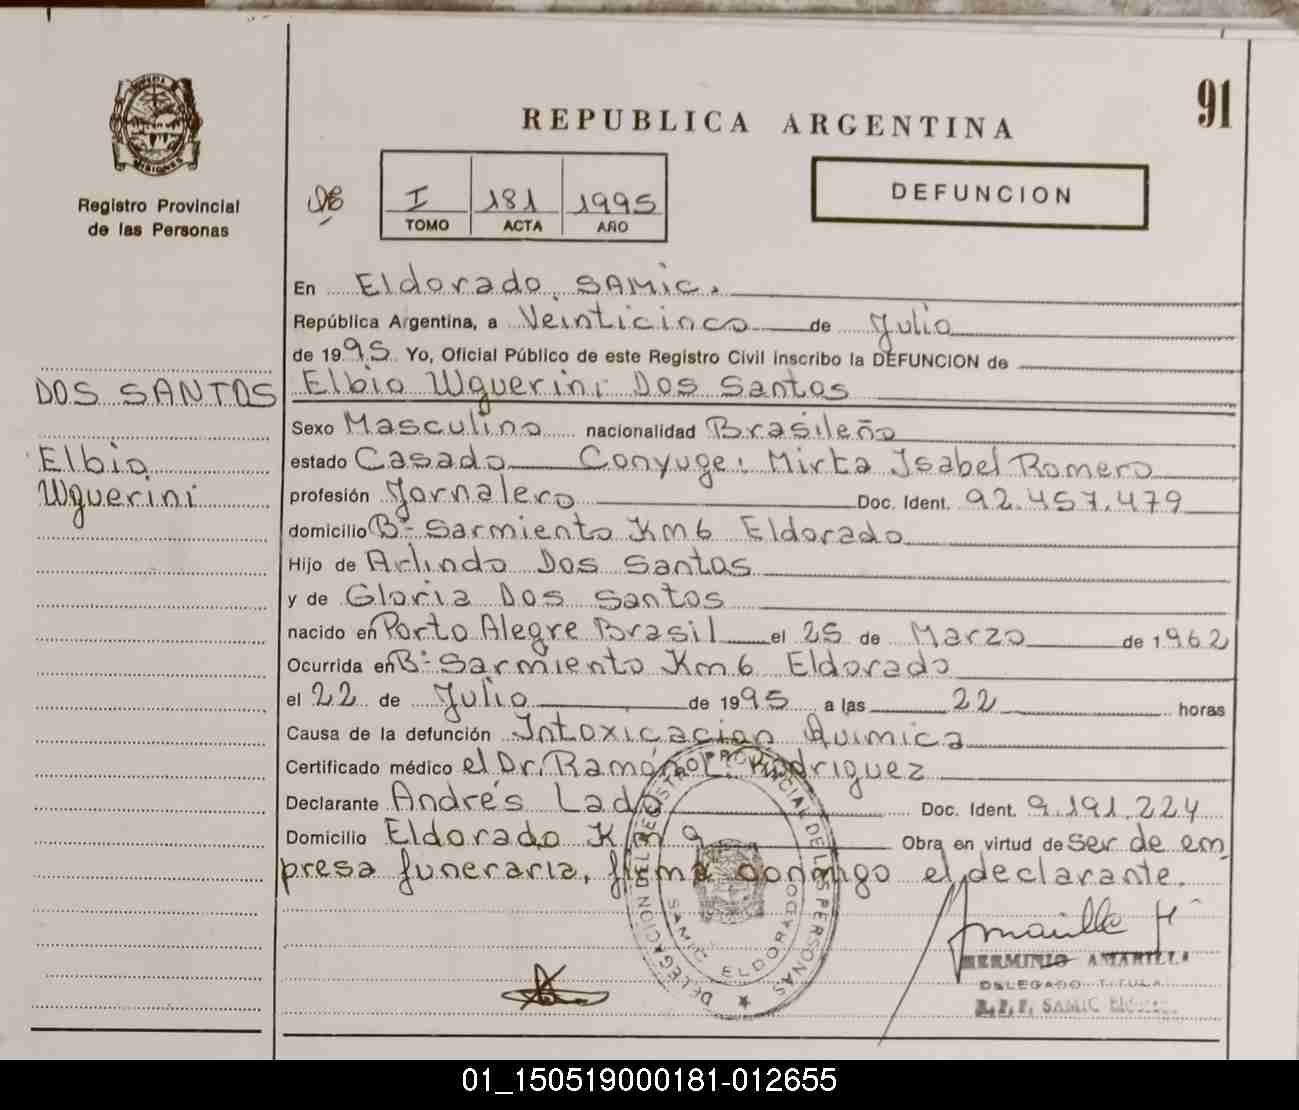 91
REPUBLICA ARGENTINA
MISIONES
Registro Provincial
de las Personas
I 181 1995
TOMO ACTA AÑO
DEFUNCION
DOS SANTOS
Elbio
Wguerini
En Eldorado, SAMIC.
República Argentina, a Veinticinco de Julio
de 1995 Yo, Oficial Público de este Registro Civil inscribo la DEFUNCION de
Elbio Wguerini Dos Santos
Sexo Masculino nacionalidad Brasileño
estado Casado Conyuge: Mirta Isabel Romero
profesión Jornalero Doc. Ident. 92.457.479
domicilio Bº Sarmiento Km 6 Eldorado
Hijo de Arlindo Dos Santos
y de Gloria Dos Santos
nacido en Porto Alegre Brasil el 25 de Marzo de 1962
Ocurrida en Bº Sarmiento Km 6 Eldorado
el 22 de Julio de 1995 a las 22 horas
Causa de la defunción Intoxicacion Quimica
Certificado médico el Dr. Ramón Rodriguez
Declarante Andrés Lado Doc. Ident. 9.191.224
Domicilio Eldorado Km 9 Obra en virtud de ser de em
presa funeraria, firma conmigo el declarante.
DELEGACION DEL REGISTRO PROVINCIAL DE LAS PERSONAS
SAMIC ELDORADO
HERMINIO AMARILLA
DELEGADO TITULA
SAMIC
01_150519000181-012655